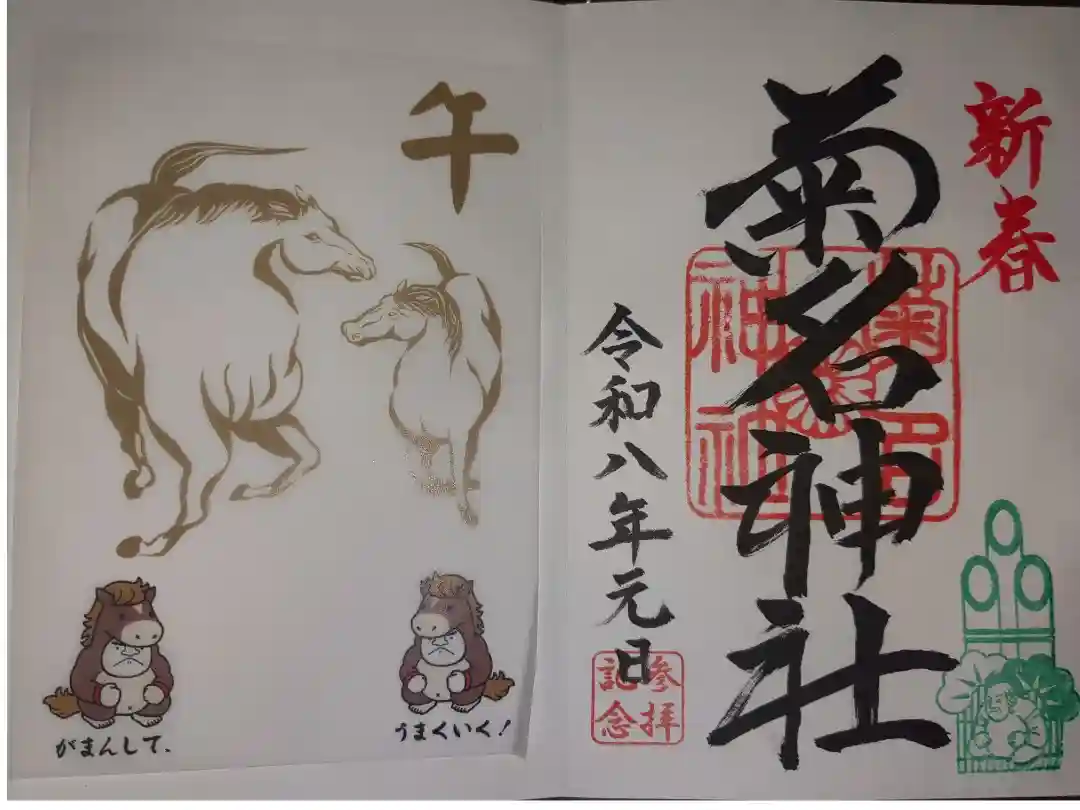 新春
菊名神社
菊名神社
令和八年元日
参拝
記念
午
がまんして、
うまくいく!